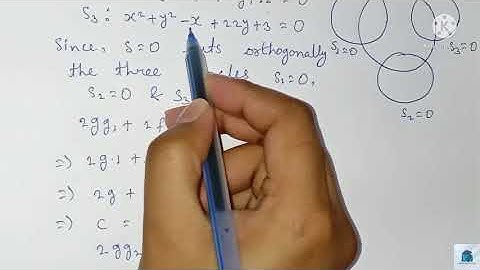 S₃ : x² + y² - x + 22y + 3 = 0
Since, S = 0 cuts orthogonally
the three S₁ = 0,
S₂ = 0 & S₃
2gg₁ + 2f
=) 2g.1 +
=) 2g +
=) c =
2gg₂
S₂ = 0